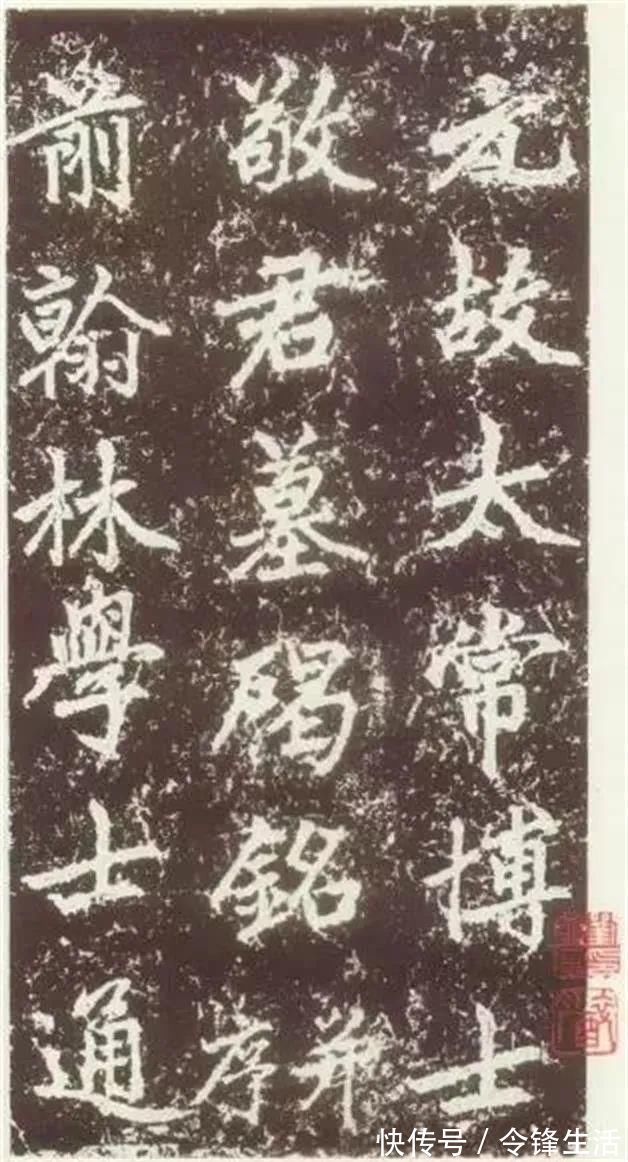 元故太常博士
敬君墓碣銘并序
前翰林學士通
快传号 / 令锋生活